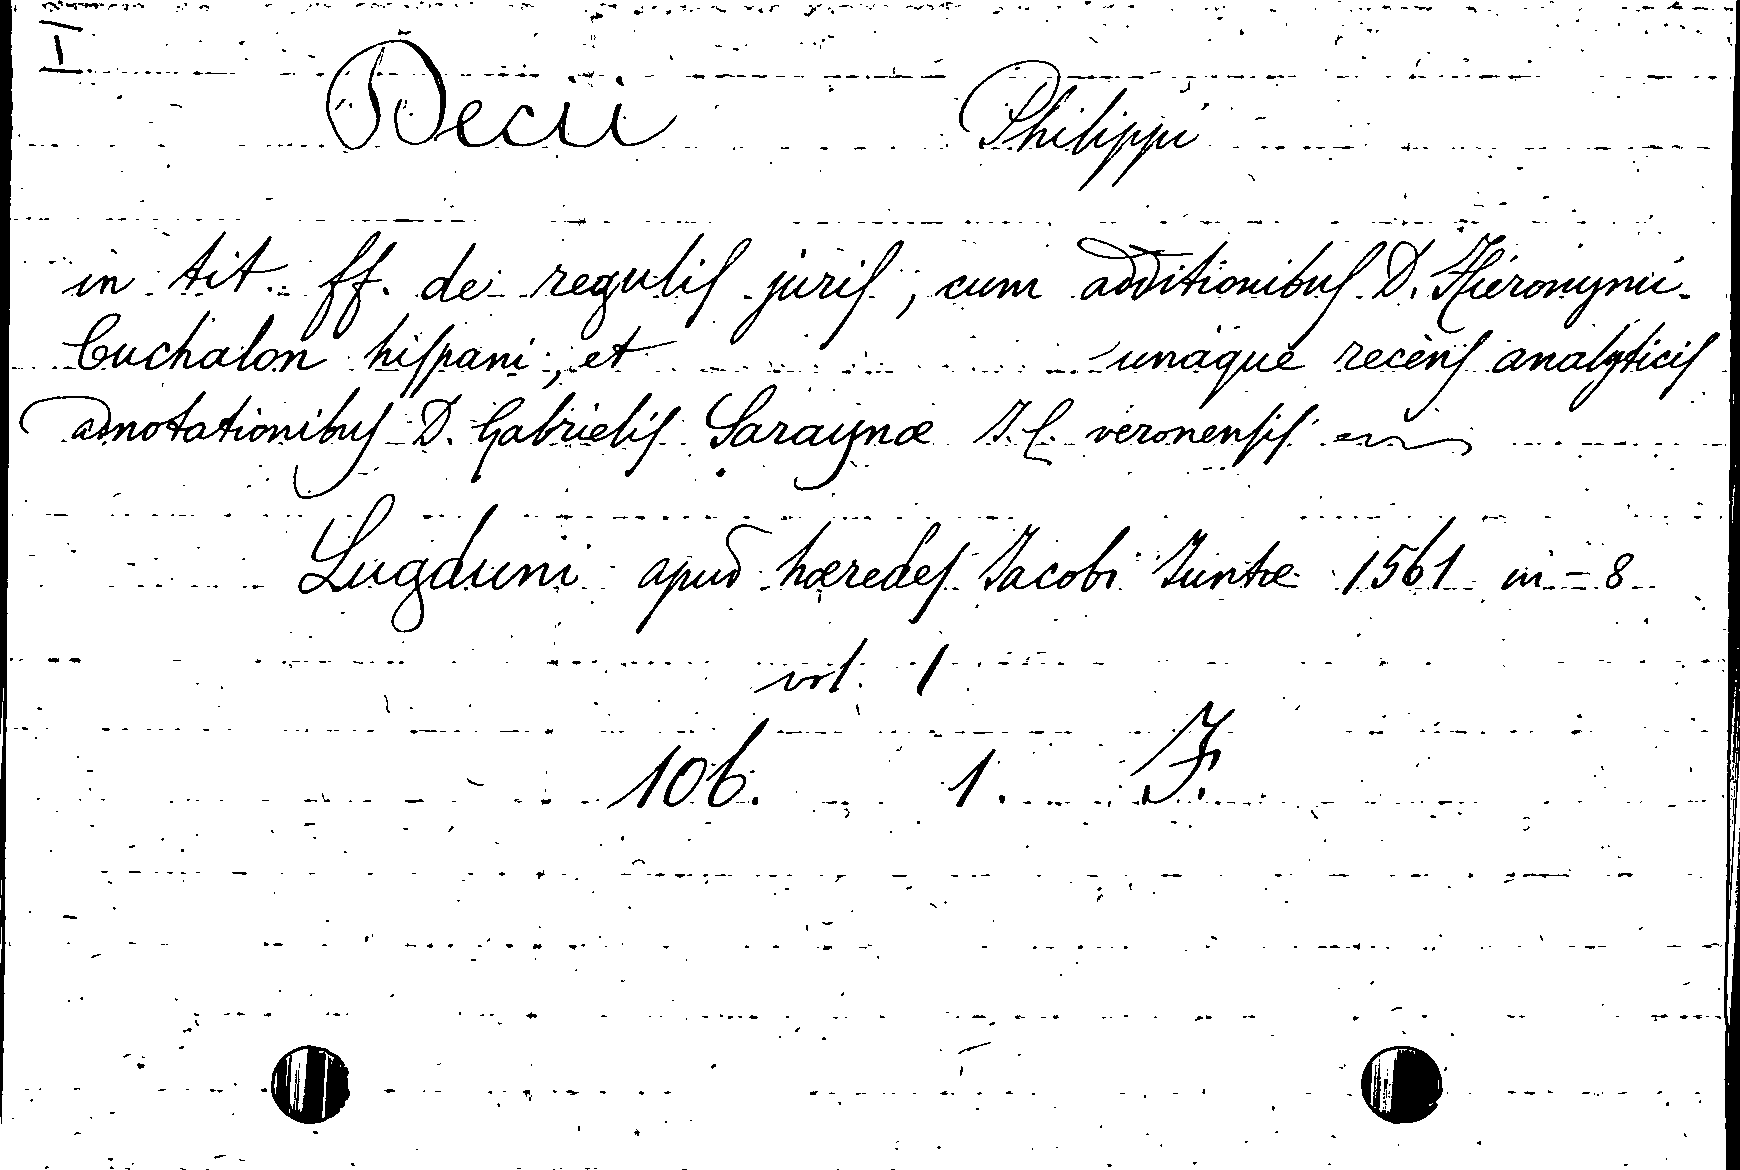 I
Decii Philippi
in tit. ff. de regulis juris, cum additionibus D. Hieronymi
Cuchalon hispani, et unaque recens analyticis
adnotationibus D. Gabrielis Saraynæ J. C. veronensis
Lugduni apud hæredes Jacobi Juntæ 1561 in-8
vol. 1
106. 1. F.